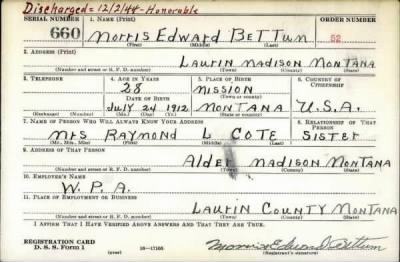 Discharged = 12/2/44 - Honorable
SERIAL NUMBER 1. Name (Print) ORDER NUMBER
660 Morris Edward BeTTum 52
(First) (Middle) (Last)
2. Address (Print)
Laurin Madison Montana
(Number and street or R. F. D. number) (Town) (County) (State)
3. Telephone 4. Age in Years 5. Place of Birth 6. Country of Citizenship
28 Mission
Date of Birth
July 24 1912 Montana U.S.A.
(Exchange) (Number) (Mo.) (Day) (Yr.) (State or country)
7. Name of Person Who Will Always Know Your Address 8. Relationship of That Person
Mrs Raymond L Cote Sister
(Mr., Mrs., Miss) (First) (Middle) (Last)
9. Address of That Person
Alder Madison Montana
(Number and street or R. F. D. number) (Town) (County) (State)
10. Employer's Name
W.P.A.
11. Place of Employment or Business
Laurin County Montana
(Number and street or R. F. D. number) (Town) (County) (State)
I Affirm That I Have Verified Above Answers and That They Are True.
REGISTRATION CARD
D. S. S. Form 1 (over) 16—17105 Morris Edward Bettum
(Registrant's signature)